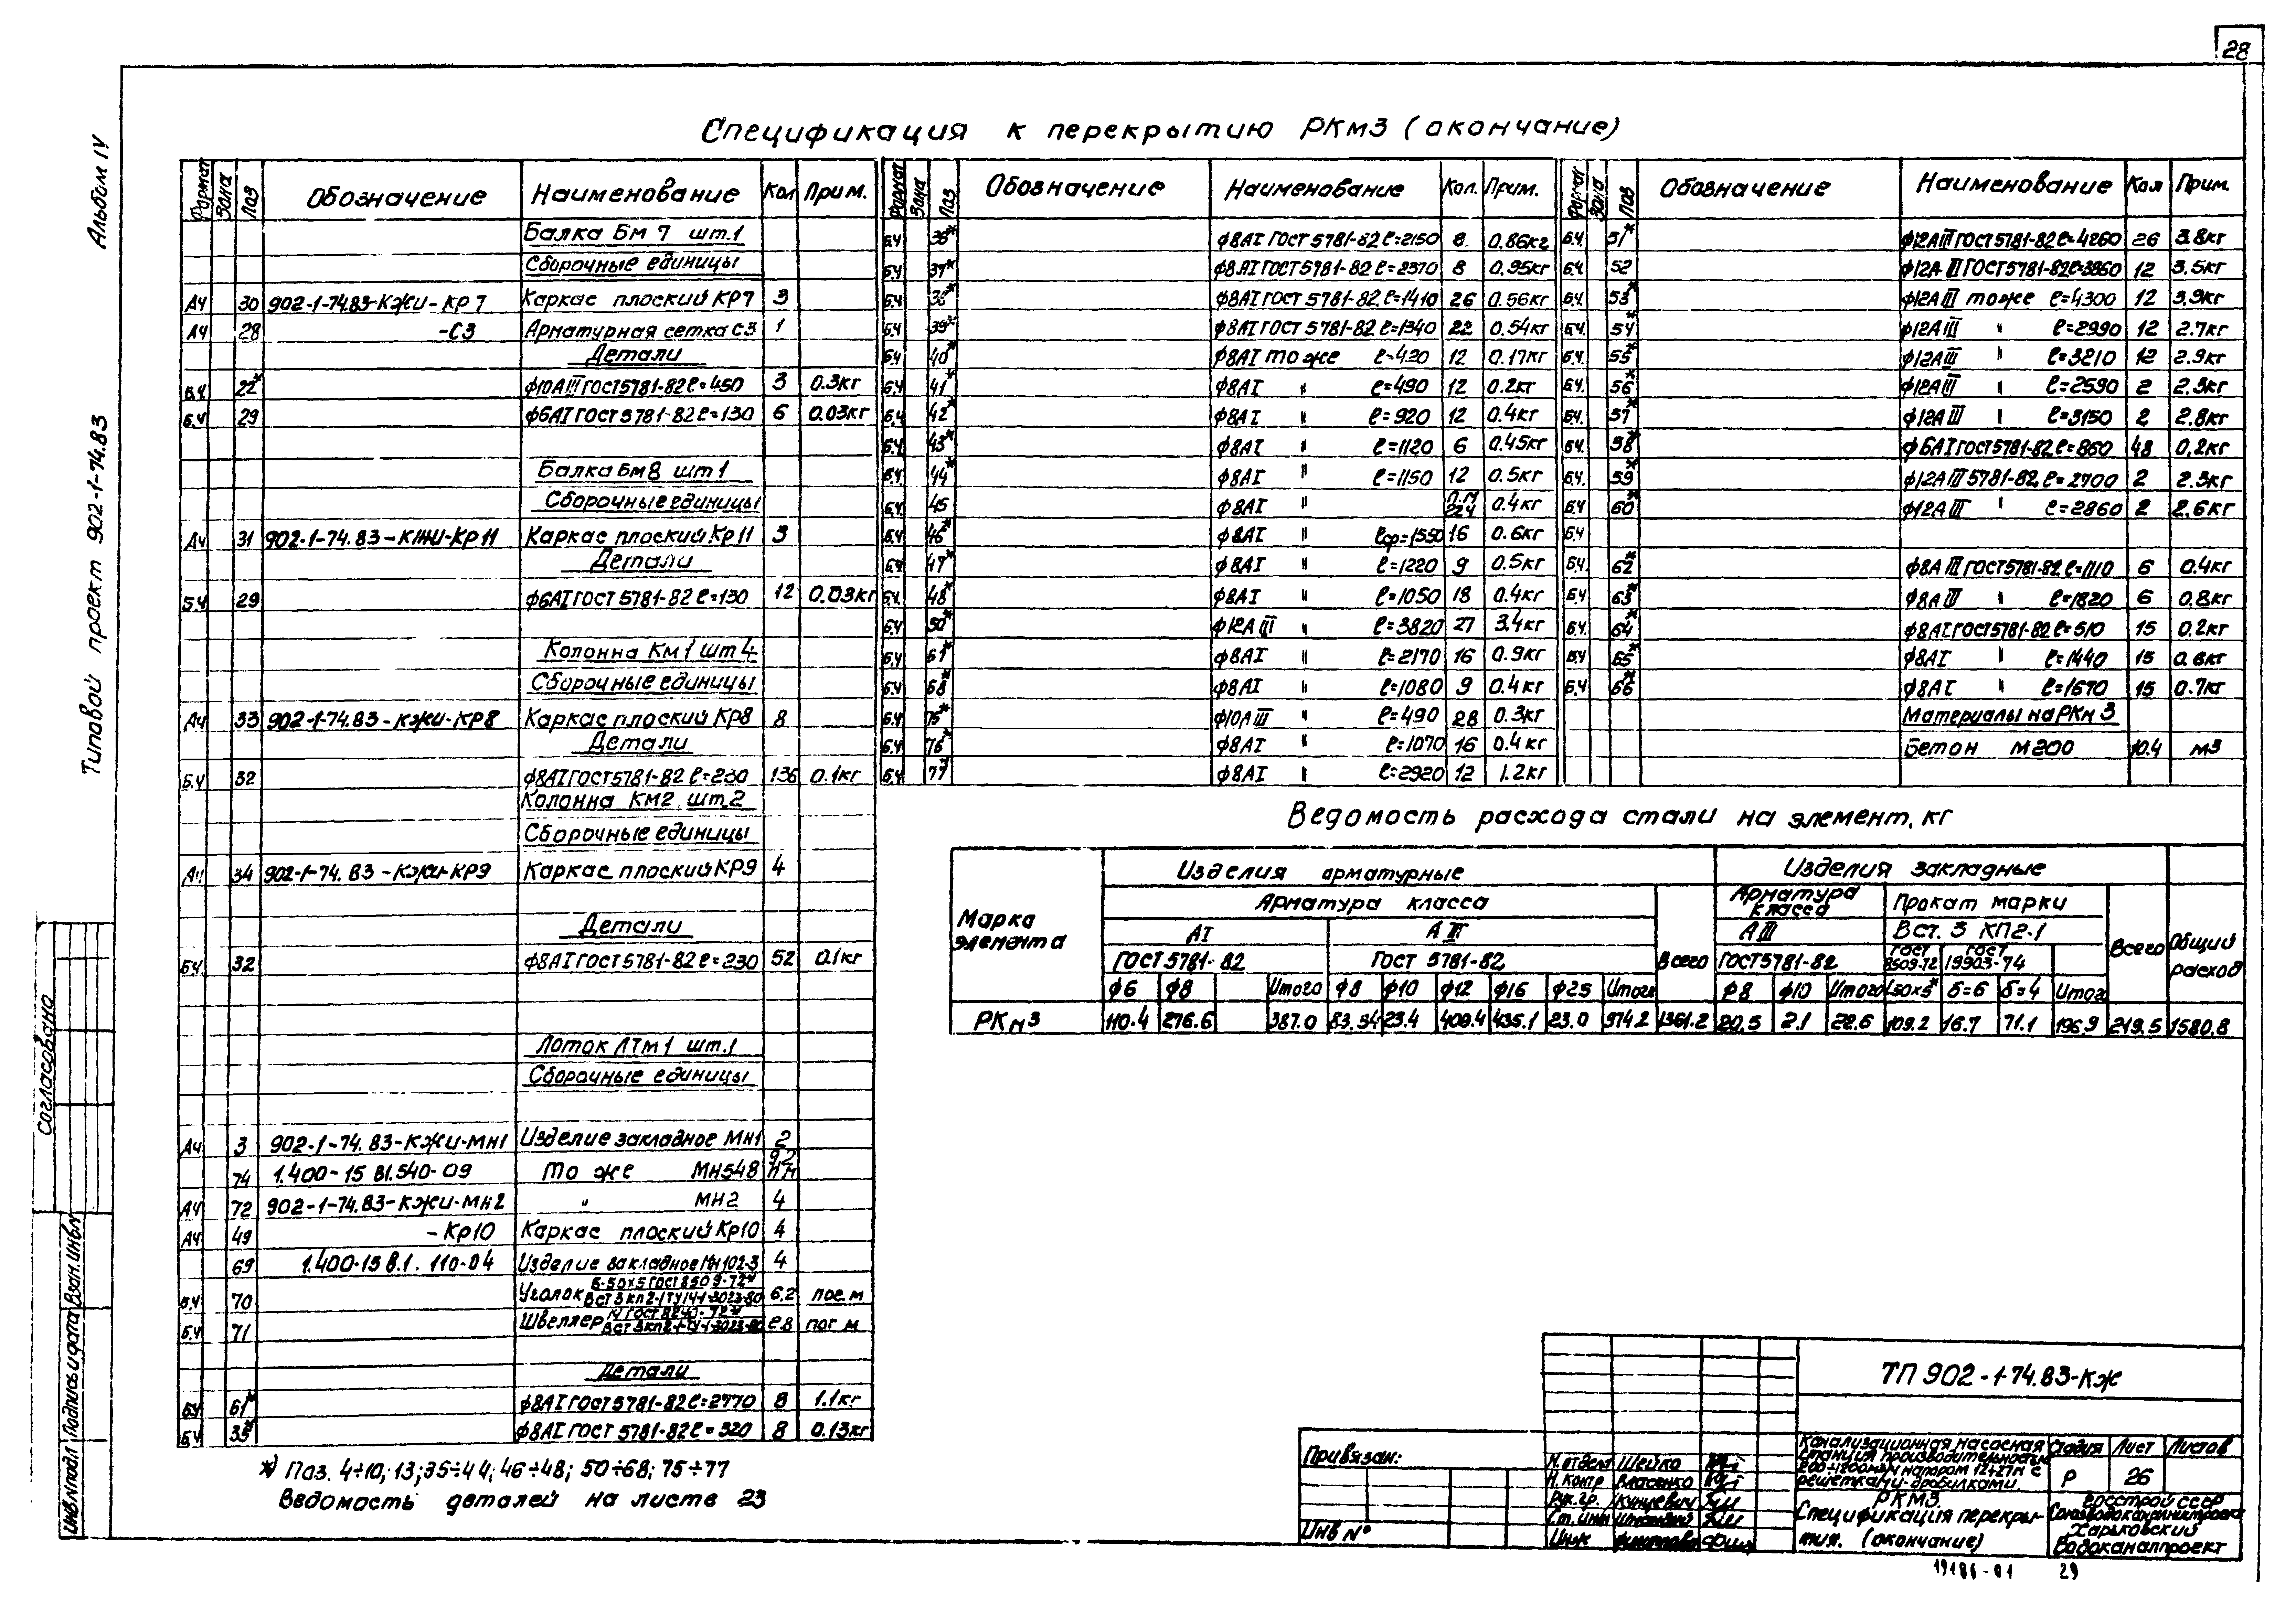 28
Альбом IV
Типовой проект 902-1-74.83
Согласовано
Инв.№подл Подпись и дата Взам.инв.№
Спецификация к перекрытию РКм3 (окончание)
Формат Зона Поз Обозначение Наименование Кол Прим.
Балка Бм 7 шт.1
Сборочные единицы
А4 30 902-1-74.83-КЖИ-КР7 Каркас плоский КР7 3
А4 28 -С3 Арматурная сетка С3 1
Детали
Б.Ч 22* ф10АIII ГОСТ5781-82 ℓ=450 3 0.3кг
Б.Ч 29 ф6АI ГОСТ5781-82 ℓ=130 6 0.03кг
Балка Бм8 шт 1
Сборочные единицы
А4 31 902-1-74.83-КЖИ-КР11 Каркас плоский Кр11 3
Детали
Б.Ч 29 ф6АI ГОСТ 5781-82 ℓ=130 12 0.03кг
Колонна Км1 шт 4
Сборочные единицы
А4 33 902-1-74.83-КЖИ-КР8 Каркас плоский Кр8 8
Детали
Б.Ч 32 ф8АI ГОСТ5781-82 ℓ=230 136 0.1кг
Колонна Км2 шт.2
Сборочные единицы
А4 34 902-1-74.83-КЖИ-КР9 Каркас плоский КР9 4
Детали
Б.Ч 32 ф8АI ГОСТ5781-82 ℓ=230 52 0.1кг
Лоток ЛТм1 шт.1
Сборочные единицы
А4 3 902-1-74.83-КЖИ-МН1 Изделие закладное Мн1 2
74 1.400-15 В1.540-09 То же МН548 9.2 п.м
А4 72 902-1-74.83-КЖИ-МН2 " МН2 4
А4 49 -Кр10 Каркас плоский Кр10 4
69 1.400-15 В.1. 110-04 Изделие закладное Мн102-3 4
Б.Ч 70 Уголок Б-50х5 ГОСТ8509-72* ВСТ3кп2-1ТУ14-1-3023-80 6.2 пог.м
Б.Ч 71 Швеллер 6.8 пог м
Детали
Б.Ч 61* ф8АI ГОСТ5781-82 ℓ=2770 8 1.1кг
Б.Ч 35* ф8АI ГОСТ 5781-82 ℓ=320 8 0.13кг
*) Поз. 4÷10; 13; 35÷44; 46÷48; 50÷68; 75÷77
Ведомость деталей на листе 23
Формат Зона Поз Обозначение Наименование Кол. Прим.
Б.Ч 36* ф8АI ГОСТ 5781-82 ℓ=2150 8 0.86кг
Б.Ч 37* ф8АI ГОСТ5781-82 ℓ=2370 8 0.95кг
Б.Ч 38* ф8АI ГОСТ 5781-82 ℓ=1410 26 0.56кг
Б.Ч 39* ф8АI ГОСТ 5781-82 ℓ=1340 22 0.54кг
Б.Ч 40* ф8АI то же ℓ=420 12 0.17кг
Б.Ч 41* ф8АI " ℓ=490 12 0.2кг
Б.Ч 42* ф8АI " ℓ=920 12 0.4кг
Б.Ч 43* ф8АI " ℓ=1120 6 0.45кг
Б.Ч 44* ф8АI " ℓ=1150 12 0.5кг
Б.Ч 45 ф8АI " п.м 224 0.4кг
Б.Ч 46* ф8АI " ℓср=1550 16 0.6кг
Б.Ч 47* ф8АI " ℓ=1220 9 0.5кг
Б.Ч 48* ф8АI " ℓ=1050 18 0.4кг
Б.Ч 50* ф12АIII " ℓ=3820 27 3.4кг
Б.Ч 67* ф8АI " ℓ=2170 16 0.9кг
Б.Ч 68* ф8АI " ℓ=1080 9 0.4кг
Б.Ч 75* ф10АIII " ℓ=490 28 0.3кг
Б.Ч 76* ф8АI " ℓ=1070 16 0.4кг
Б.Ч 77* ф8АI " ℓ=2920 12 1.2кг
Формат Зона Поз Обозначение Наименование Кол Прим.
Б.Ч. 51* ф12АIII ГОСТ5781-82 ℓ=4260 26 3.8кг
Б.Ч. 52 ф12АIII ГОСТ5781-82 ℓ=3960 12 3.5кг
Б.Ч. 53* ф12АIII то же ℓ=4300 12 3.9кг
Б.Ч. 54* ф12АIII " ℓ=2990 12 2.7кг
Б.Ч. 55* ф12АIII " ℓ=3210 12 2.9кг
Б.Ч. 56* ф12АIII " ℓ=2590 2 2.3кг
Б.Ч. 57* ф12АIII " ℓ=3150 2 2.8кг
Б.Ч. 58* ф6АI ГОСТ5781-82 ℓ=860 48 0.2кг
Б.Ч. 59* ф12АIII 5781-82 ℓ=2700 2 2.3кг
Б.Ч. 60* ф12АIII " ℓ=2860 2 2.6кг
Б.Ч
Б.Ч. 62* ф8АIII ГОСТ5781-82 ℓ=1110 6 0.4кг
Б.Ч 63* ф8АIII " ℓ=1820 6 0.8кг
Б.Ч. 64* ф8АI ГОСТ5781-82 ℓ=510 15 0.2кг
Б.Ч 65* ф8АI " ℓ=1440 15 0.6кг
Б.Ч 66* ф8АI " ℓ=1670 15 0.7кг
Материалы на РКм 3
Бетон М200 10.4 м3
Ведомость расхода стали на элемент, кг
Марка элемента Изделия арматурные Изделия закладные Общий расход
Арматура класса Всего Арматура класса Прокат марки Всего
АI АIII АIII Вст. 3 КП2-1
ГОСТ5781-82 ГОСТ 5781-82 ГОСТ5781-82 ГОСТ 8509-72 ГОСТ 19903-74
ф6 ф8 Итого ф8 ф10 ф12 ф16 ф25 Итого ф8 ф10 Итого L50х5* δ=6 δ=4 Итого
РКм3 110.4 276.6 387.0 83.34 23.4 409.4 435.1 23.0 974.2 1361.2 20.5 2.1 22.6 109.2 16.7 71.1 196.9 219.5 1580.8
ТП 902-1-74.83-КЖ
Привязан:
Инв №
Н.отдела Шейко
Н.контр Власенко
Рук.гр. Кунцевич
Ст.инж
Инж
Канализационная насосная станция производительностью 200÷1200м3/ч напором 12÷27м с решетками-дробилками.
Стадия Лист Листов
Р 26
РКМ3. Спецификация перекрытия. (окончание)
Госстрой СССР
Союзводоканалниипроект
Харьковский
Водоканалпроект
19186-01 29